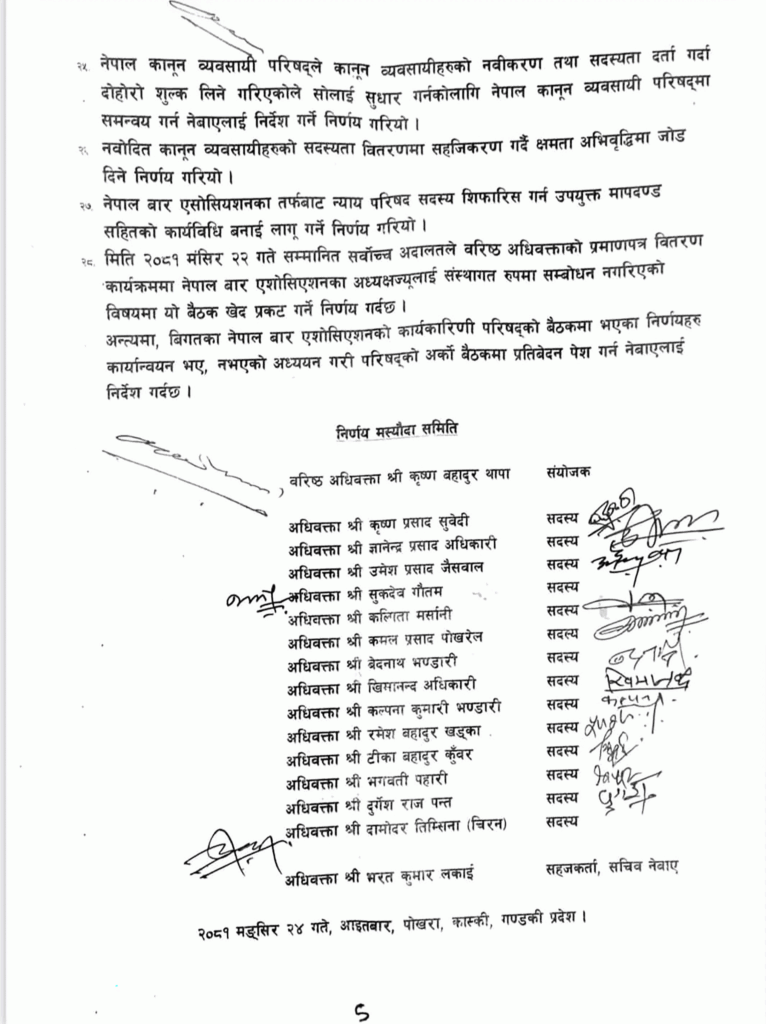 २५. नेपाल कानून व्यवसायी परिषद्ले कानून व्यवसायीहरुको नवीकरण तथा सदस्यता दर्ता गर्दा
दोहोरो शुल्क लिने गरिएकोले सोलाई सुधार गर्नकोलागि नेपाल कानून व्यवसायी परिषद्मा
समन्वय गर्न नेबाएलाई निर्देश गर्ने निर्णय गरियो ।
२६. नवोदित कानून व्यवसायीहरुको सदस्यता वितरणमा सहजिकरण गर्दै क्षमता अभिवृद्धिमा जोड
दिने निर्णय गरियो ।
२७. नेपाल बार एसोसियशनका तर्फबाट न्याय परिषद सदस्य शिफारिस गर्न उपयुक्त मापदण्ड
सहितको कार्यविधि बनाई लागू गर्ने निर्णय गरियो ।
२८. मिति २०८१ मंसिर २२ गते सम्मानित सर्वोच्च अदालतले वरिष्ठ अधिवक्ताको प्रमाणपत्र वितरण
कार्यक्रममा नेपाल बार एशोसिएशनका अध्यक्षज्यूलाई संस्थागत रुपमा सम्बोधन नगरिएको
विषयमा यो बैठक खेद प्रकट गर्ने निर्णय गर्दछ ।
अन्त्यमा, बिगतका नेपाल बार एशोसिएशनको कार्यकारिणी परिषद्को बैठकमा भएका निर्णयहरु
कार्यान्वयन भए, नभएको अध्ययन गरी परिषद्को अर्को बैठकमा प्रतिबेदन पेश गर्न नेबाएलाई
निर्देश गर्दछ ।
निर्णय मस्यौदा समिति
वरिष्ठ अधिवक्ता श्री कृष्ण बहादुर थापा संयोजक
अधिवक्ता श्री कृष्ण प्रसाद सुवेदी सदस्य
अधिवक्ता श्री ज्ञानेन्द्र प्रसाद अधिकारी सदस्य
अधिवक्ता श्री उमेश प्रसाद जैसवाल सदस्य
अधिवक्ता श्री सुकदेव गौतम सदस्य
अधिवक्ता श्री कल्पिता मर्सानी सदस्य
अधिवक्ता श्री कमल प्रसाद पोखरेल सदस्य
अधिवक्ता श्री बेदनाथ भण्डारी सदस्य
अधिवक्ता श्री खिमानन्द अधिकारी सदस्य
अधिवक्ता श्री कल्पना कुमारी भण्डारी सदस्य
अधिवक्ता श्री रमेश बहादुर खड्का सदस्य
अधिवक्ता श्री टीका बहादुर कुँवर सदस्य
अधिवक्ता श्री भगवती पहारी सदस्य
अधिवक्ता श्री दुर्गेश राज पन्त सदस्य
अधिवक्ता श्री दामोदर तिम्सिना (चिरन) सदस्य
अधिवक्ता श्री भरत कुमार लकाई सहजकर्ता, सचिव नेबाए
२०८१ मङ्सिर २४ गते, आइतबार, पोखरा, कास्की, गण्डकी प्रदेश ।
5